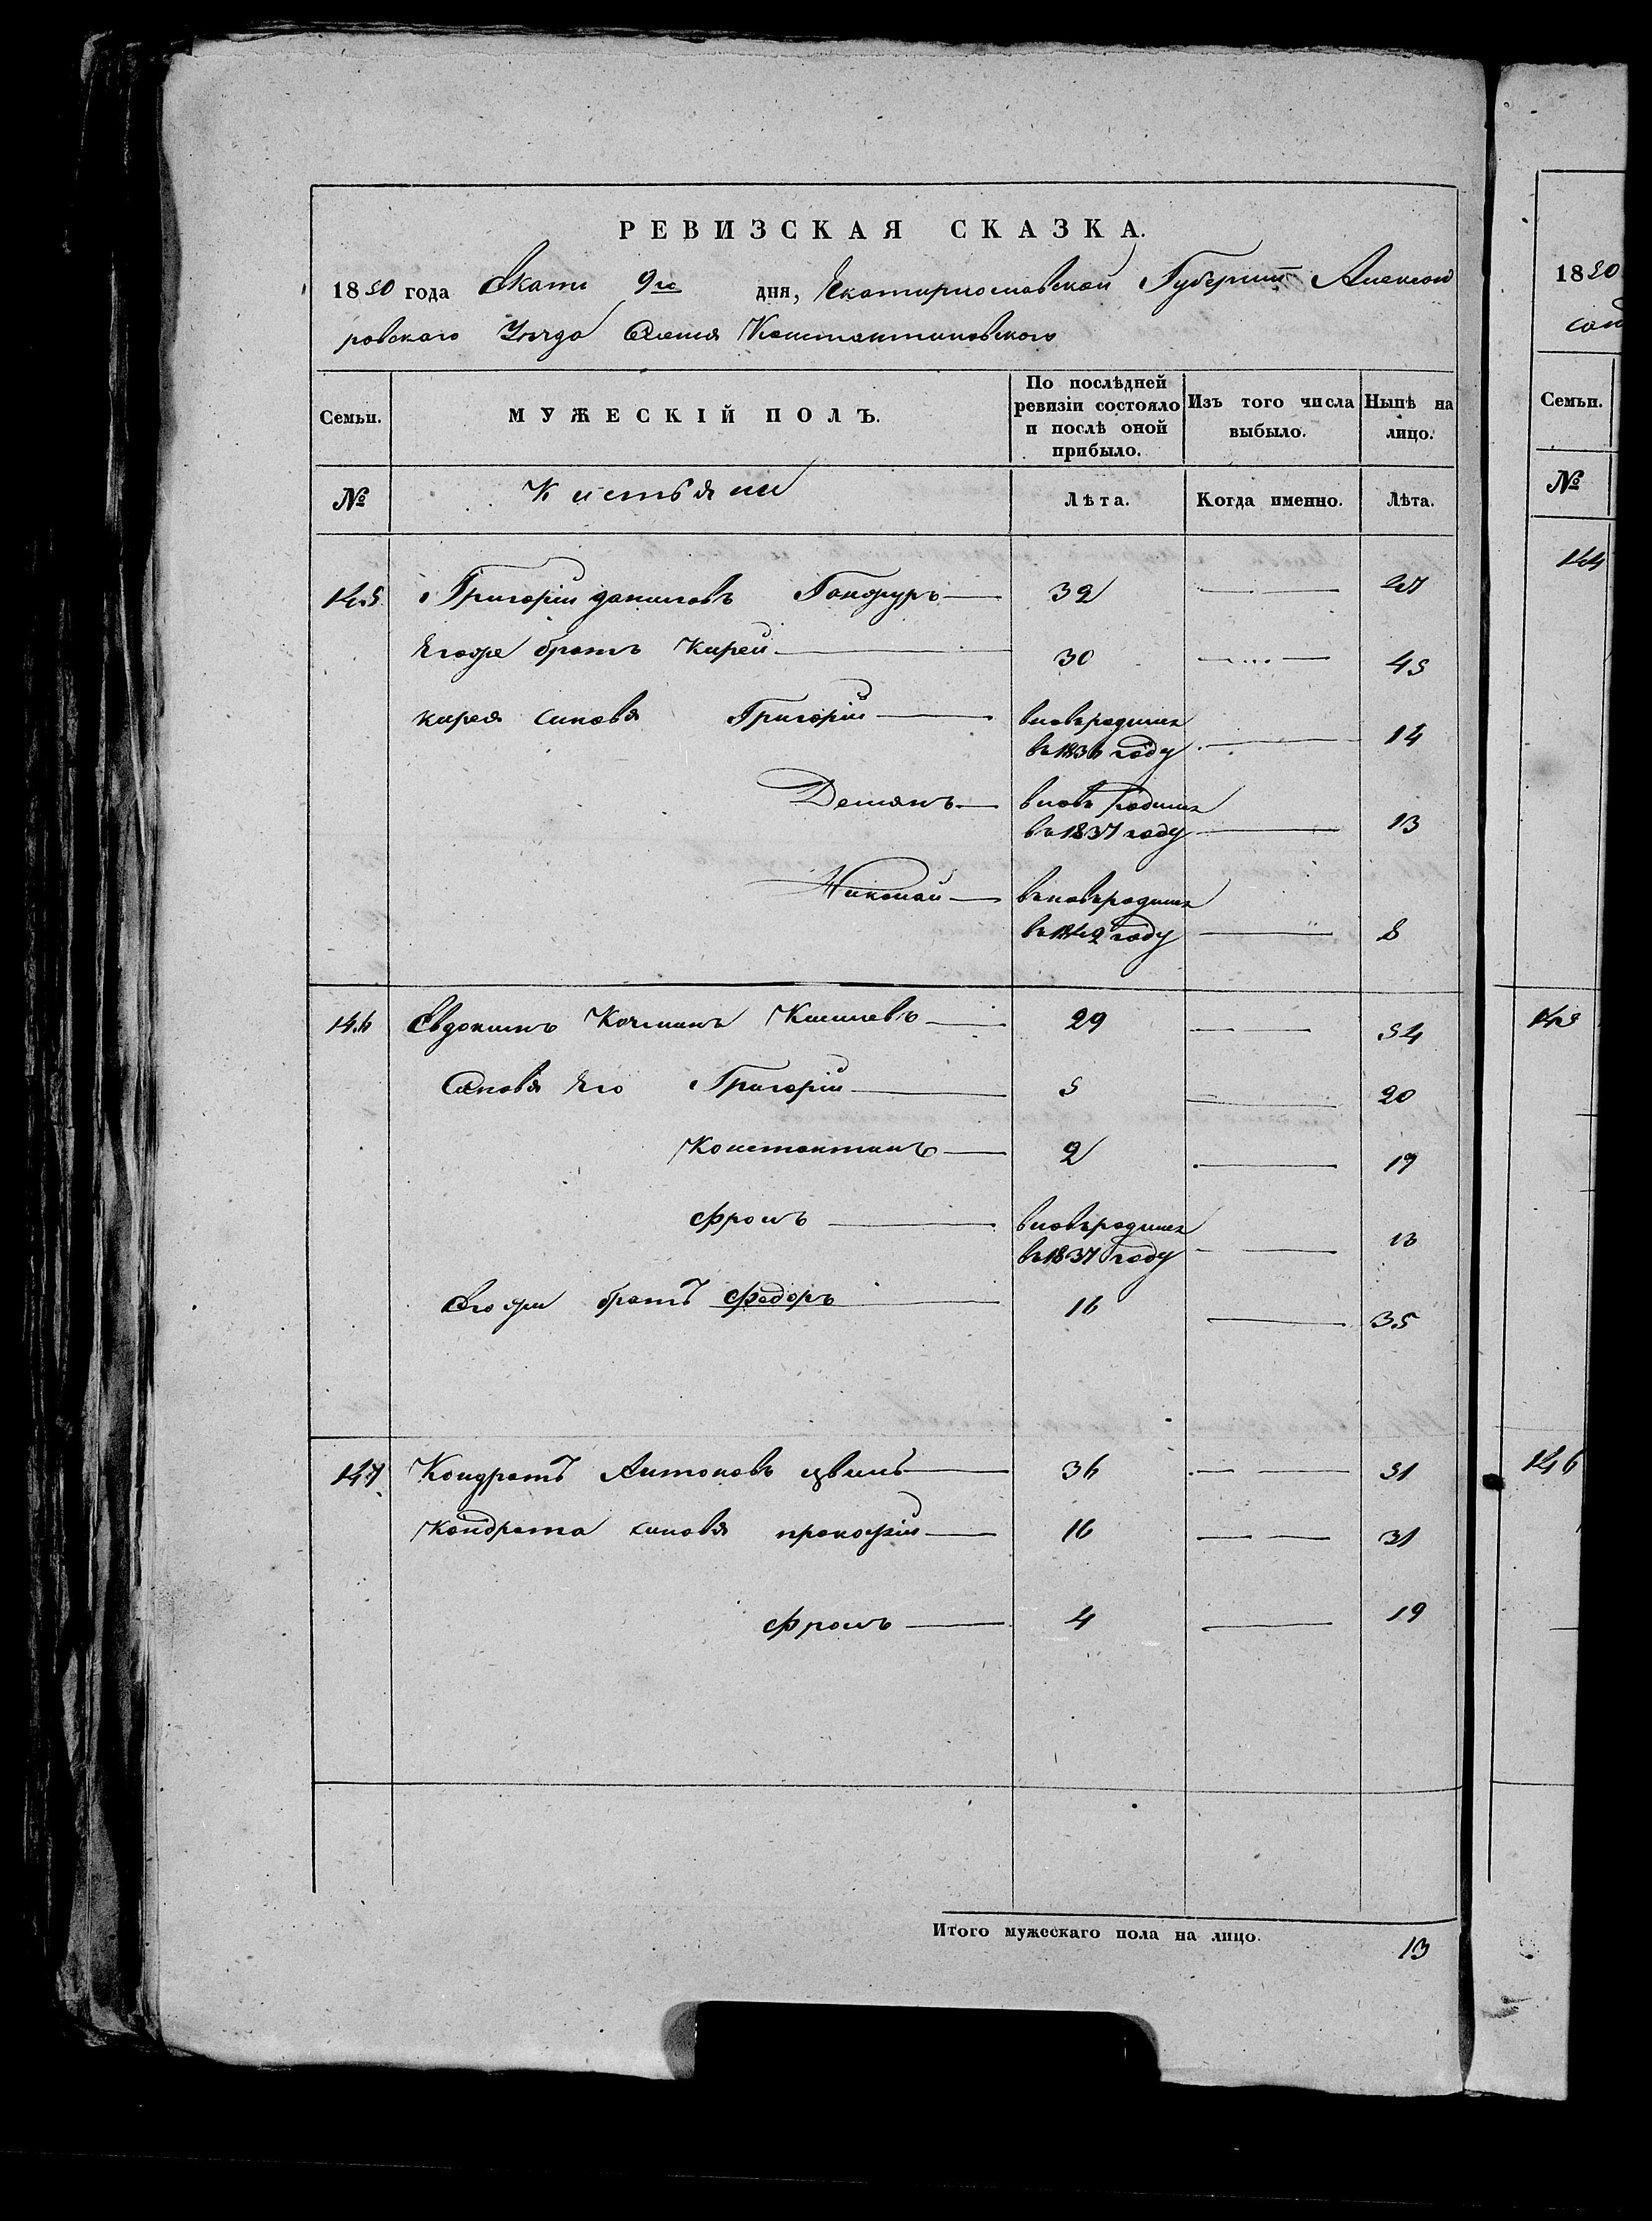 РЕВИЗСКАЯ СКАЗКА.
1850 года 9го дня, Екатиринославской Губернии Александ
ровского Уезда Селения Константиновского
Семьи.
МУЖЕСКІЙ ПОЛЪ.
По послѣдней ревизіи состояло и послѣ оной прибыло.
Изъ того числа выбыло.
Нынѣ на лицо.
№
Лѣта.
Когда именно.
Лѣта.
145 Григорій даниловъ 32 47
Егоже братъ Кирей 30 45
кирея синовя Григорій вновьродился
въ 1836 году 14
Демянъ вновь родился
въ 1837 году 13
Николай вьновьродился
въ 1842 году 8
146 Евдокимъ Киселевъ 29 54
Синовя Его Григорій 5 20
Константинъ 2 19
Фролъ вновьродился
въ 1837 году 13
Егоже братъ Федоръ 16 35
147 Кондратъ Антоновъ цвиль 36 51
Кондрата синовя прокофій 16 31
Фролъ 4 19
Итого мужескаго пола на лицо. 13
1850
Семьи.
№
144
145
146